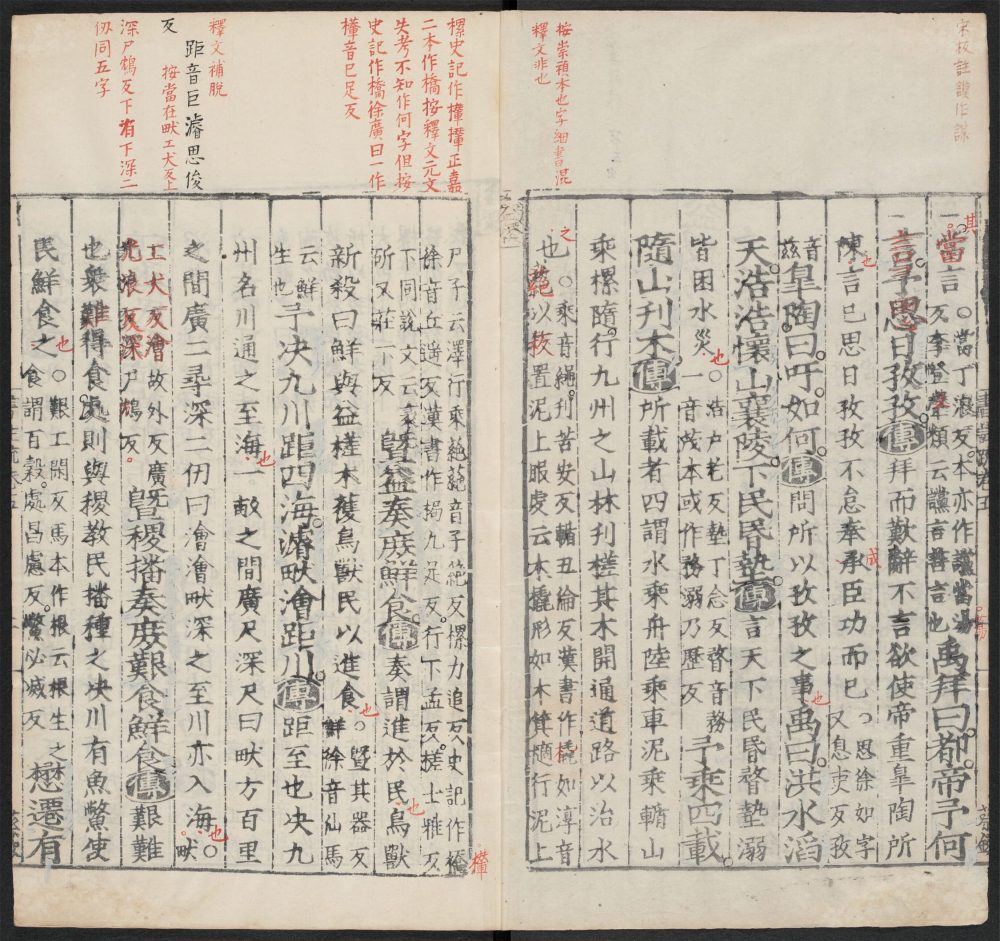 按崇禎本也字細書混
釋文非也
當言○當丁浪反本亦作讜當湯反李登聲類云讜言善言也禹拜曰都帝予何
言予思日孜孜傳拜而歎辭不言欲使帝重皐陶所
陳言已思日孜孜不怠奉承臣功而已○思徐如字又息吏反孜
音茲皐陶曰吁如何傳問所以孜孜之事禹曰洪水滔
天浩浩懷山襄陵下民昏墊傳言天下民昏瞀墊溺
皆困水災○浩戶老反墊丁念反瞀音務一音茂本或作務溺乃歷反予乘四載
隨山刋木傳所載者四謂水乘舟陸乘車泥乘輴山
乘樏隨行九州之山林刋槎其木開通道路以治水
也○乘音繩刋苦安反輴丑倫反漢書作橇如淳音蕝以板置泥上服虔云木橇形如木箕擿行泥上
樏史記作檋檋正嘉
二本作橋按釋文元文
失考不知作何字但按
史記作橋徐廣曰一作
檋音已足反
釋文補脫
距音巨濬思俊
反 按當在畎工犬反上
深尸鴆反下有下深二
仭同五字
尸子云澤行乘蕝蕝音子絕反樏力追反史記作橋徐音丘遙反漢書作梮九足反行下孟反槎士雅反
下同說文云衺斫又莊下反曁益奏庶鮮食傳奏謂進於民鳥獸
新殺曰鮮與益槎木獲鳥獸民以進食○曁其器反鮮徐音仙馬
云鮮生也予決九川距四海濬畎澮距川傳距至也決九
州名川通之至海一畝之間廣尺深尺曰畎方百里
之間廣二尋深二仞曰澮澮畎深之至川亦入海○畎
工犬反澮故外反廣光浪反深尸鴆反曁稷播奏庶艱食鮮食傳艱難
也衆難得食處則與稷教民播種之決川有魚鱉使
民鮮食之○艱工閑反馬本作根云根生之食謂百穀處昌慮反鱉必滅反懋遷有